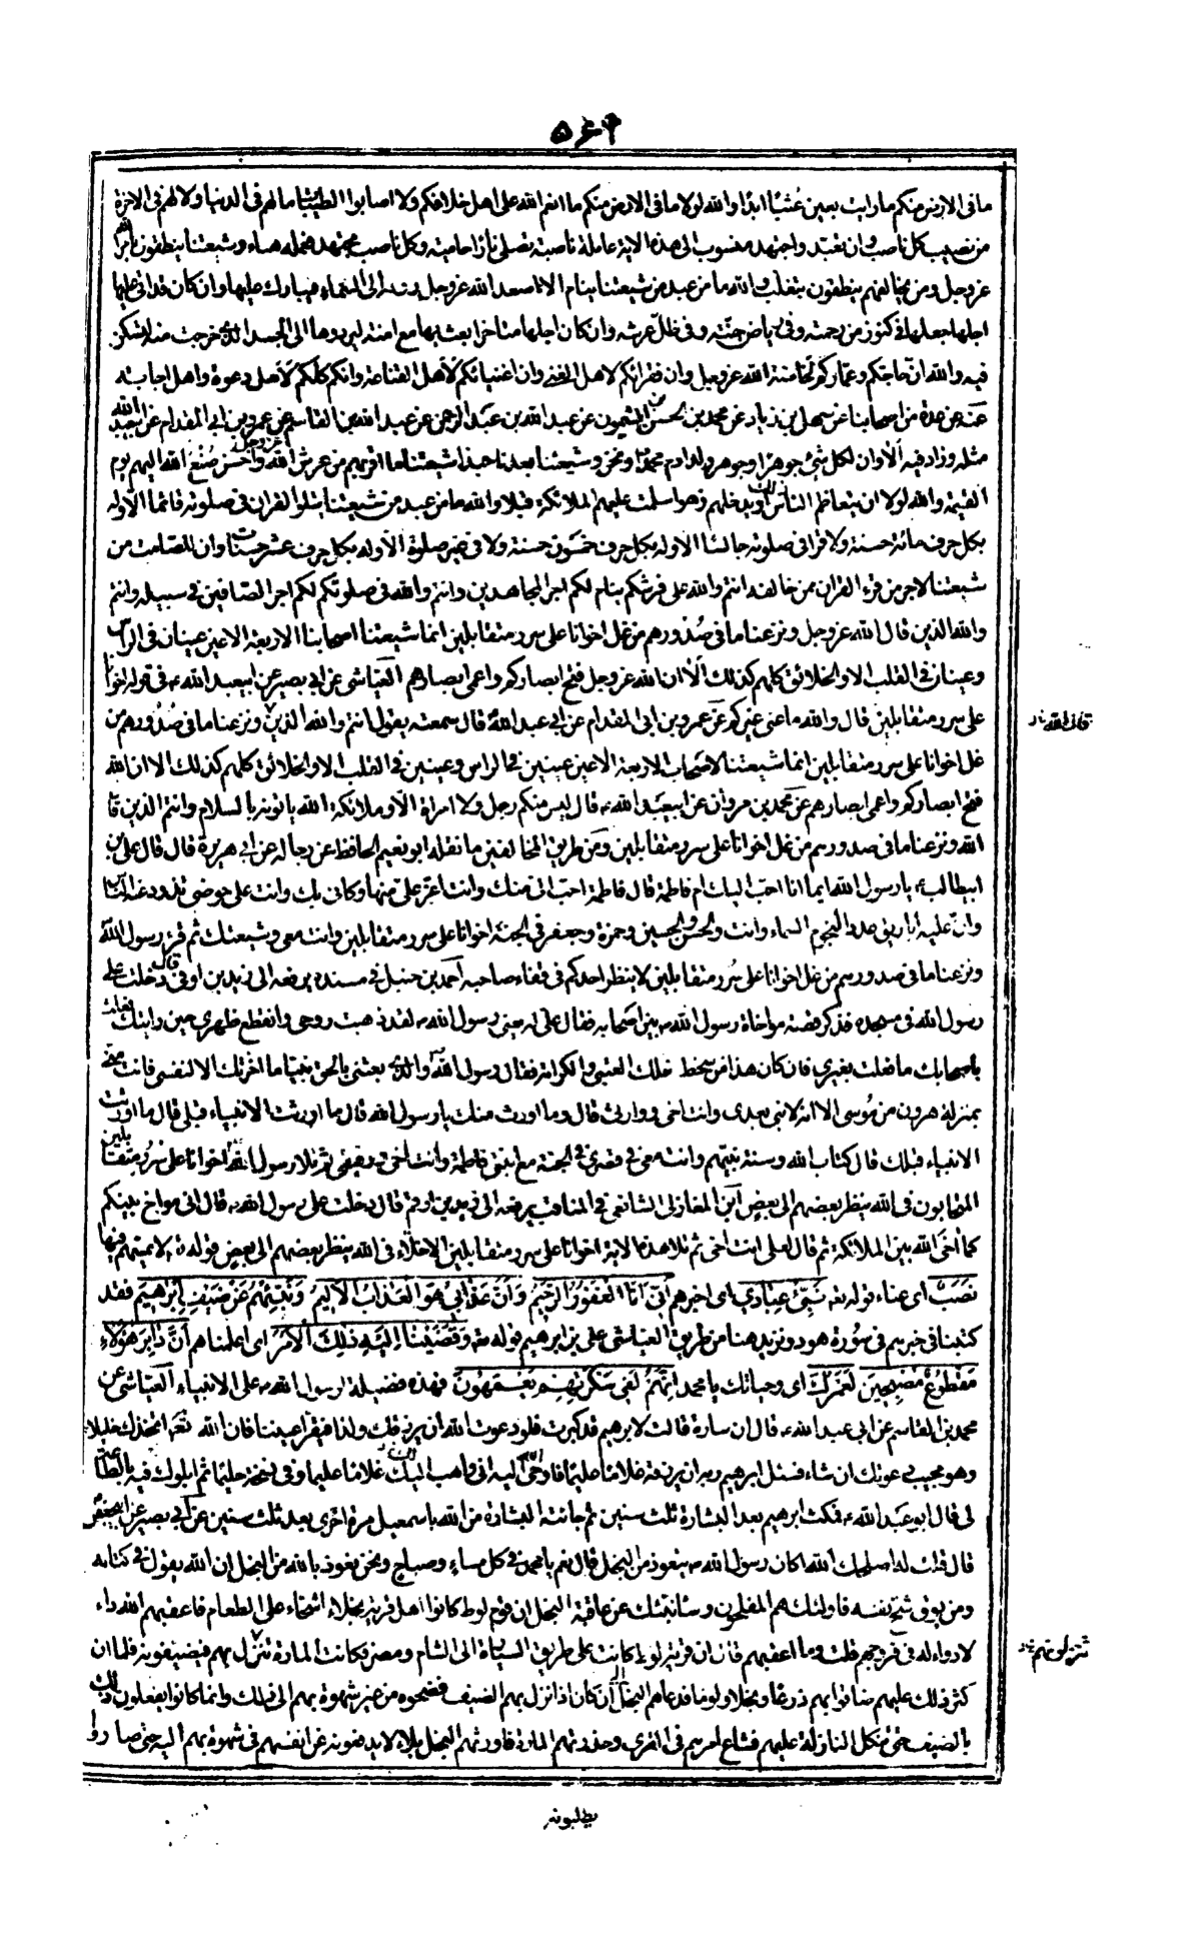 ٥٦٢
ما فى الارض منكم ما رايت بعين عُشبًا ابدًا والله لولا ما فى الارض منكم ما انعم الله على اهل خلافكم ولا اصابوا الطيّبات ما لهم فى الدنيا ولا لهم فى الاخرة
من نصيب كل ناصب وان تعبّد واجتهد منسوب الى هذه الاية عاملة ناصبة تصلى نارًا حامية وكل ناصب مجتهد فعمله هباء وشيعتنا ينطقون بامر الله
عز وجل ومن يخالفهم ينطقون بتفلّت والله ما من عبد من شيعتنا ينام الا اصعد الله عز وجل روحه الى السماء فيبارك عليها وان كان قد اتى عليها
اجلها جعلها فى كنوز من رحمته وفى رياض جنّته وفى ظلّ عرشه وان كان اجلها متاخرا بعث بها مع امنته ليردوها الى الجسد الذى خرجت منه لتسكن
فيه والله انّ حاجّكم وعمّاركم لخاصّة الله عز وجل وان فقرائكم لاهل الغنى وان اغنيائكم لاهل القناعة وانكم كلّكم لاهل دعوة واهل اجابته
عنه عن عدة من اصحابنا عن سهل بن زياد عن محمد بن الحسن بن الشمون عن عبد الله بن عبد الرحمن عن عبد الله بن القاسم عن عمرو بن ابى المقدام عن ابيعبد الله
مثله وزاد فيه الا وان لكل شىء جوهرًا وجوهر ولد ادم محمدًا ونحن وشيعتنا بعدنا حبذا شيعتنا ما اقربهم من عرش الله عز وجل واحسن صُنْع الله اليهم يوم
القيمة والله لولا ان يتعاظم الناس ذلك او يدخلهم زهو لسلمت عليهم الملائكة قبلا والله ما من عبد من شيعتنا يتلو القران فى صلوته قائما الا وله
بكل حرف مائة حسنة ولا قرا فى صلوته جالسًا الا وله بكل حرف خمسون حسنة ولا فى غير صلوة الا وله بكل حرف عشر حسنات وان للصّامت من
شيعتنا لاجر من قرء القران ممن خالفه انتم والله على فرشكم نيام لكم اجر المجاهدين وانتم والله فى صلوتكم لكم اجر الصّافين فى سبيله وانتم
والله الذين قال الله عز وجل ونزعنا ما فى صُدُورهم من غل اخوانا على سرر متقابلين انما شيعتنا اصحاب الاربعة الاعين عينان فى الراس
وعينان فى القلب الا والخلائق كلهم كذلك اَلا ان الله عز وجل فتح ابصاركم واعمى ابصارهم العيّاشى عن ابى بصير عن ابيعبد الله ع فى قوله اخوانا
على سرر متقابلين قال والله ما عنى غيركم عن عمرو بن ابى المقدام عن ابى عبد الله قال سمعته يقول انتم والله الذين ونزعنا ما فى صُدُورهم من
غل اخوانا على سرر متقابلين انما شيعتنا اصحاب الاربعة الاعين عينين فى الراس وعينين فى القلب الا والخلائق كلهم كذلك الا ان الله
فتح ابصاركم واعمى ابصارهم عن محمد بن مروان عن ابيعبد الله ع قال ليس منكم رجل ولا امراة الّا وملائكة الله ياتونه بالسلام وانتم الذين قال
الله ونزعنا ما فى صدورهم من غل اخوانا على سرر متقابلين ومن طريق المخالفين ما نقله ابو نعيم الحافظ عن رجاله عن ابى هريرة قال قال على بن
ابيطالب ع يا رسول الله ايما انا احبّ اليك ام فاطمة قال فاطمة احبّ الىّ منك وانت اعزّ علىّ منها وكانى بك وانت على حوضى تذود عنه الناس
وانّ عليه اباريق عدد النجوم السماء وانت والحسن والحسين وحمزة وجعفر فى الجنة اخوانا على سرر متقابلين وانت معى وشيعتك ثم قرء رسول الله
ونزعنا ما فى صدورهم من غل اخوانا على سُرر متقابلين لا ينظر احدكم فى قفاء صاحبه احمد بن حنبل فى مسنده يرفعه الى زيد بن اوفى قال دخلت على
رسول الله فى مسجده فذكر قصة مواخاة رسول الله ص بين اصحابه فقال على له يعنى رسول الله ص لقد ذهبت روحى وانقطع ظهرى حين رايتك فعلت
باصحابك ما فعلت بغيرى فان كان هذا من سخط فلك العتبى والكرامة فقال رسول الله ص والذى بعثنى بالحق نبيّا ما اخّرتك الا لنفسى فانت منّى
بمنزلة هرون من مُوسى الا انه لا نبى بعدى وانت اخى ووارثى قال وما اورث منك يا رسول الله قال ما اورثت الانبياء قبلى قال ما اورثت
الانبياء قبلك قال كتاب الله وسنة نبيّهم وانت معى فى قصرى فى الجنة مع ابنتى فاطمة وانت اخى ورفيقى ثم تلا رسول الله اخوانا على سُرر متقابلين
المتحابون فى الله ينظر بعضهم الى بعض ابن المغازلى الشافعى فى المناقب يرفعه الى زيد بن ارقم قال دخلت على رسول الله ص قال انى مواخ بينكم
كما آخى الله بين الملائكة ثم قال لعلى انت اخى ثم تلا هذه الاية اخوانا على سرر متقابلين الاخلّاء فى الله ينظر بعضهم الى بعض قوله لا يمسّهم فيها
نَصَبٌ اى عناء قوله تعالى نَبِّئْ عِبادى اى اخبرهم أَنّى أَنَا الْغَفُورُ الرَّحيمُ وَأَنَّ عَذابى هُوَ الْعَذابُ الْاَليمُ وَنَبِّئْهُمْ عَنْ ضَيْفِ إِبْرهيمَ فقد
كتبنا فى خبرهم فى سُورة هود ونزيد هنا من طريق العياشى على بن ابرهيم قوله تعالى وَقَضَيْنا إِلَيْهِ ذلِكَ الْأَمْرَ اى اعلمناهم أَنَّ دابِرَ هؤُلاءِ
مَقْطُوعٌ مُصْبِحينَ لَعَمْرُكَ اى وحياتك يا محمد إِنَّهُمْ لَفى سَكْرَتِهِمْ يَعْمَهُونَ فهذه فضيلة لرسول الله ص على الانبياء العيّاشى عن
محمد بن القاسم عن ابى عبد الله ع قال ان سارة قالت لابرهيم قد كبرت فلو دعوت الله ان يرزقك ولدًا فيقرّ اعيننا فان الله قد اتخذك خليلا
وهو مجيب دعوتك ان شاء فسئل ابرهيم ربه ان يرزقه غلامًا عليمًا فاوحى الله اليه انى واهب لك غلامًا عليما وفى نسخة حليمًا ثم ابلوك فيه بالطاعة
لى قال ابو عبد الله ع فمكث ابرهيم بعد البشارة ثلث سنين ثم جائته البشارة من الله باسمعيل مرة اخرى بعد ثلث سنين عن ابى بصير عن ابيجعفر
قال قلت له اصلحك الله اكان رسول الله ص يتعوذ من البخل قال نعم يا محمد فى كل مساء وصباح ونحن نعوذ بالله من البخل ان الله يقول فى كتابه
ومن يوق شح نفسه فاولئك هم المفلحون وسأنبئك عن عاقبة البخل ان قوم لوط كانوا اهل قرية بخلاء اشحّاء على الطعام فاعقبهم الله داء
لا دواء له فى فروجهم قلت وما اعقبهم قال ان قرية لوط كانت على طريق السيارة الى الشام ومصر فكانت المارة تنزل بهم فيضيفونهم فلما ان
كثر ذلك عليهم ضاقوا بهم ذرعًا وبخلا ولومًا فدعاهم البخل الى ان كان اذا نزل بهم الضيف فضحوه من غير شهوة بهم الى ذلك وانما كانوا يفعلون ذلك
بالضيف حتى تنكل النازلة عليهم فشاع امرهم فى القرى وحذرتهم المارة فاورثهم البخل بلاء لا يدفعونه عن انفسهم فى شهوة بهم اليه حتى صاروا
يطلبونه